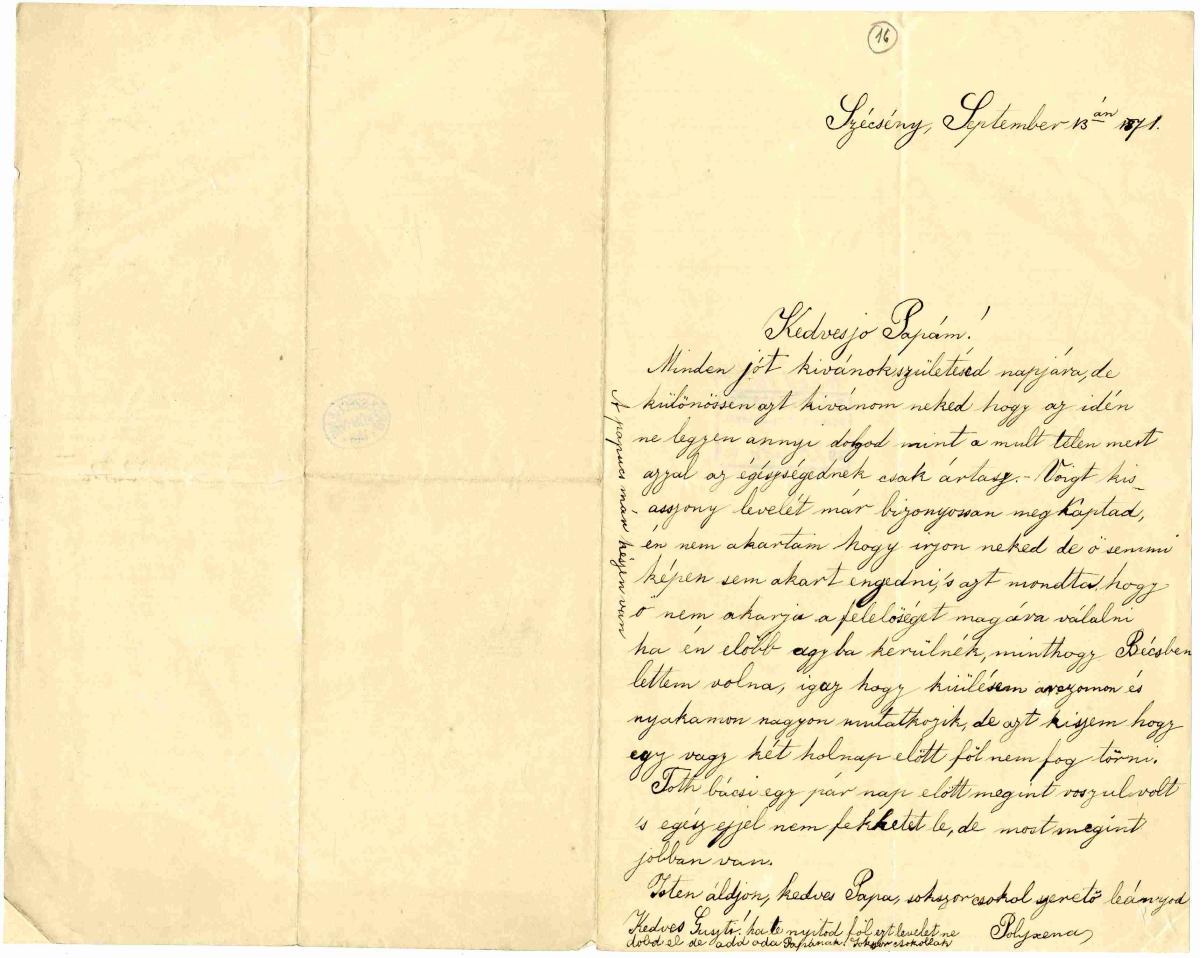 16
Szécsény, September 13 án 1871.
Kedves jo Papám!
Minden jót kivánok születésed napjára, de
különössen azt kivánom neked hogy az idén
ne legyen annyi dolgod mint a mult télen mert
azzal az égésségednek csak ártasz. – Voigt kis-
asszony levelét már bizonyossan megkaptad,
én nem akartam hogy irjon neked de ő semmi
képen sem akart engedni, 's azt mondta, hogy
ő nem akarja a felelőséget magáva válalni
ha én előbb agyba kerülnék, minthogy Bécsben
lettem volna, igaz hogy küülésem arczomon és
nyakamon nagyon mutatkozik, de azt hiszem hogy
egy vagy két holnap előtt föl nem fog törni.
Toth bácsi egy pár nap elött megint roszul volt
's egész éjjel nem fekhetet le, de most megint
jobban van.
Isten áldjon, kedves Papa, sokszor csokol szerető leányod
Polyxena
Kedves Guszti! ha te nyitod föl ezt levelet ne
dobd el de add oda Papának! Sokszor csokollak
A papucs már készen van